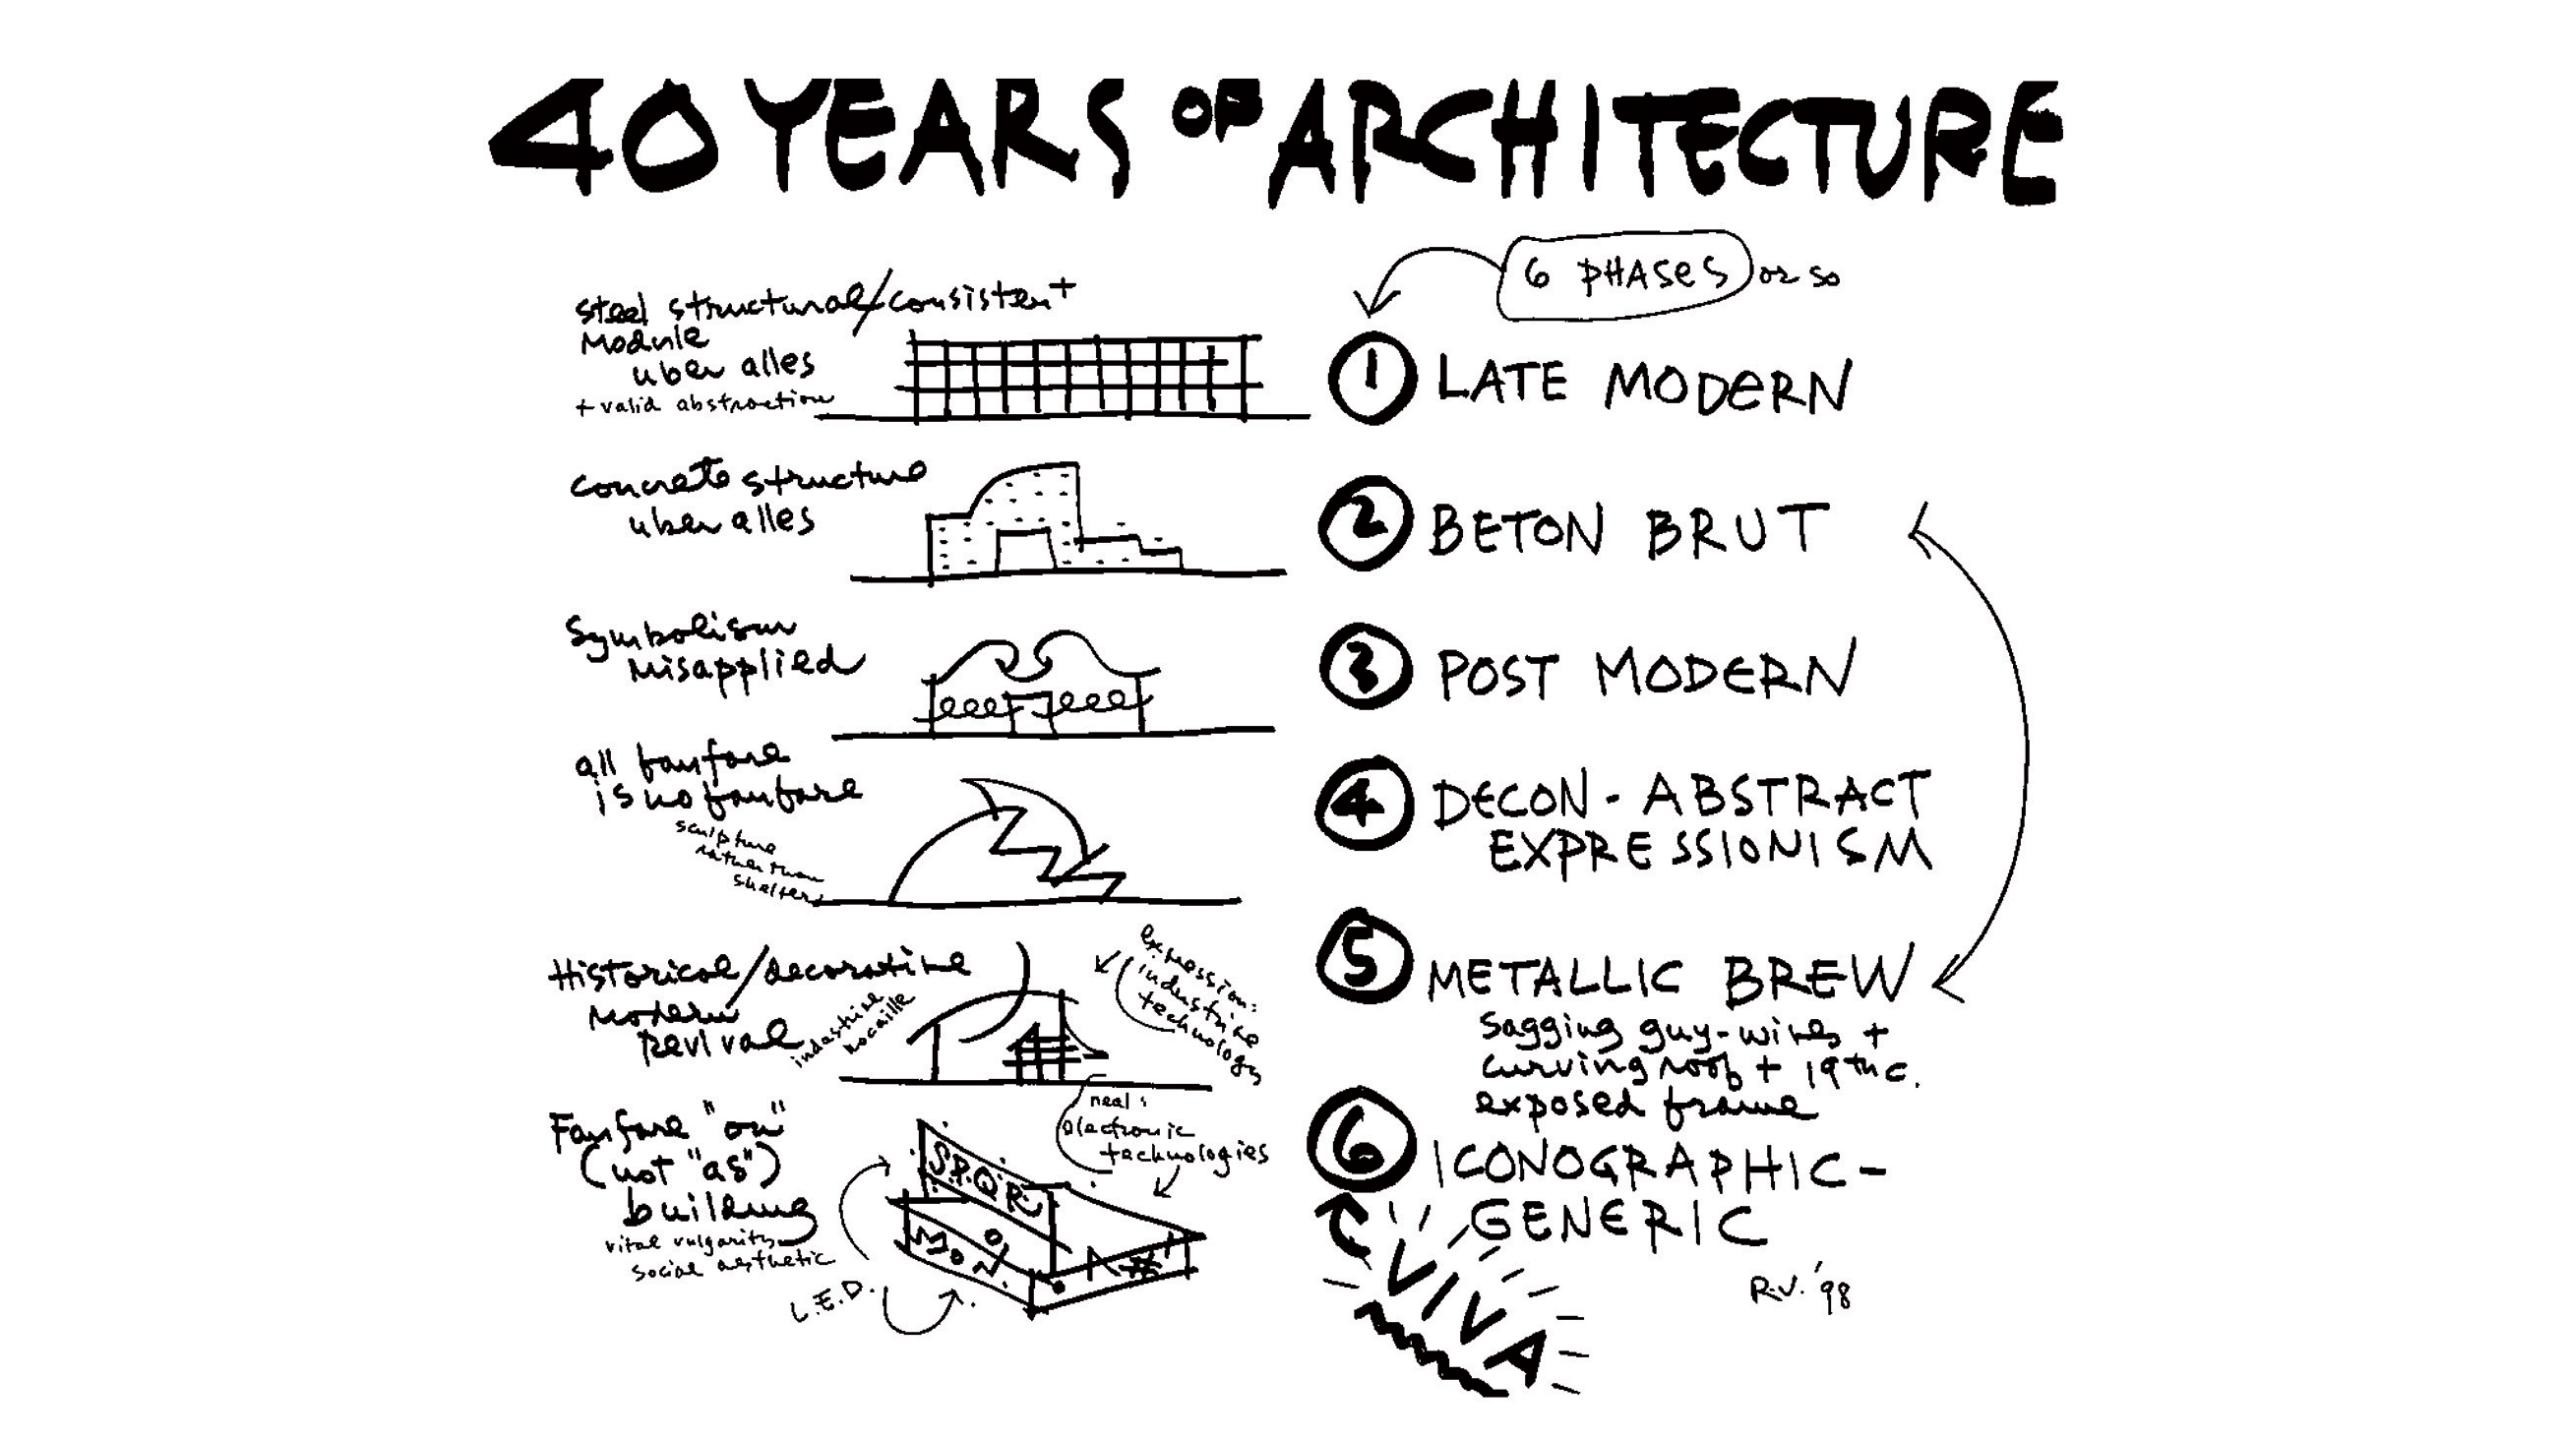 40 YEARS OF ARCHITECTURE
6 PHASES or so
steel structural/consistent
Module
uber alles
+ valid abstraction
1 LATE MODERN
concrete structure
uber alles
2 BETON BRUT
Symbolism
Misapplied
3 POST MODERN
all fanfare
is no fanfare
sculpture
rather than
shelter
4 DECON-ABSTRACT
EXPRESSIONISM
Historical/decorative
Modern
Revival
industrial
rocaille
expression:
industrial
technology
5 METALLIC BREW
Sagging guy-wires +
curving roof + 19th c.
exposed frame
Fanfare "on"
(not "as")
building
vital vulgarity
social aesthetic
L.E.D.
real:
electronic
technologies
S.P.Q.R.
6 ICONOGRAPHIC-
GENERIC
VIVA
R.V. '98